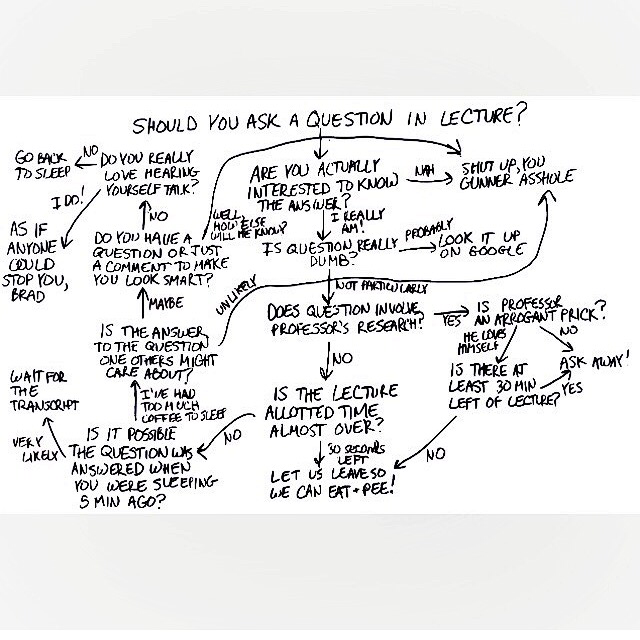 SHOULD YOU ASK A QUESTION IN LECTURE?
ARE YOU ACTUALLY
INTERESTED TO KNOW
THE ANSWER?
NAH
SHUT UP, YOU
GUNNER ASSHOLE
I REALLY
AM!
IS QUESTION REALLY
DUMB?
PROBABLY
LOOK IT UP
ON GOOGLE
NOT PARTICULARLY
DOES QUESTION INVOLVE
PROFESSOR'S RESEARCH?
YES
IS PROFESSOR
AN ARROGANT PRICK?
NO
ASK AWAY!
HE LOVES
HIMSELF
IS THERE AT
LEAST 30 MIN
LEFT OF LECTURE?
YES
NO
NO
IS THE LECTURE
ALLOTTED TIME
ALMOST OVER?
30 SECONDS
LEFT
LET US LEAVE SO
WE CAN EAT + PEE!
NO
IS IT POSSIBLE
THE QUESTION WAS
ANSWERED WHEN
YOU WERE SLEEPING
5 MIN AGO?
VERY
LIKELY
WAIT FOR
THE
TRANSCRIPT
I'VE HAD
TOO MUCH
COFFEE TO SLEEP
IS THE ANSWER
TO THE QUESTION
ONE OTHERS MIGHT
CARE ABOUT?
UNLIKELY
MAYBE
DO YOU HAVE A
QUESTION OR JUST
A COMMENT TO MAKE
YOU LOOK SMART?
WELL,
HOW ELSE
WILL HE KNOW?
NO
DO YOU REALLY
LOVE HEARING
YOURSELF TALK?
NO
GO BACK
TO SLEEP
I DO!
AS IF
ANYONE
COULD
STOP YOU,
BRAD